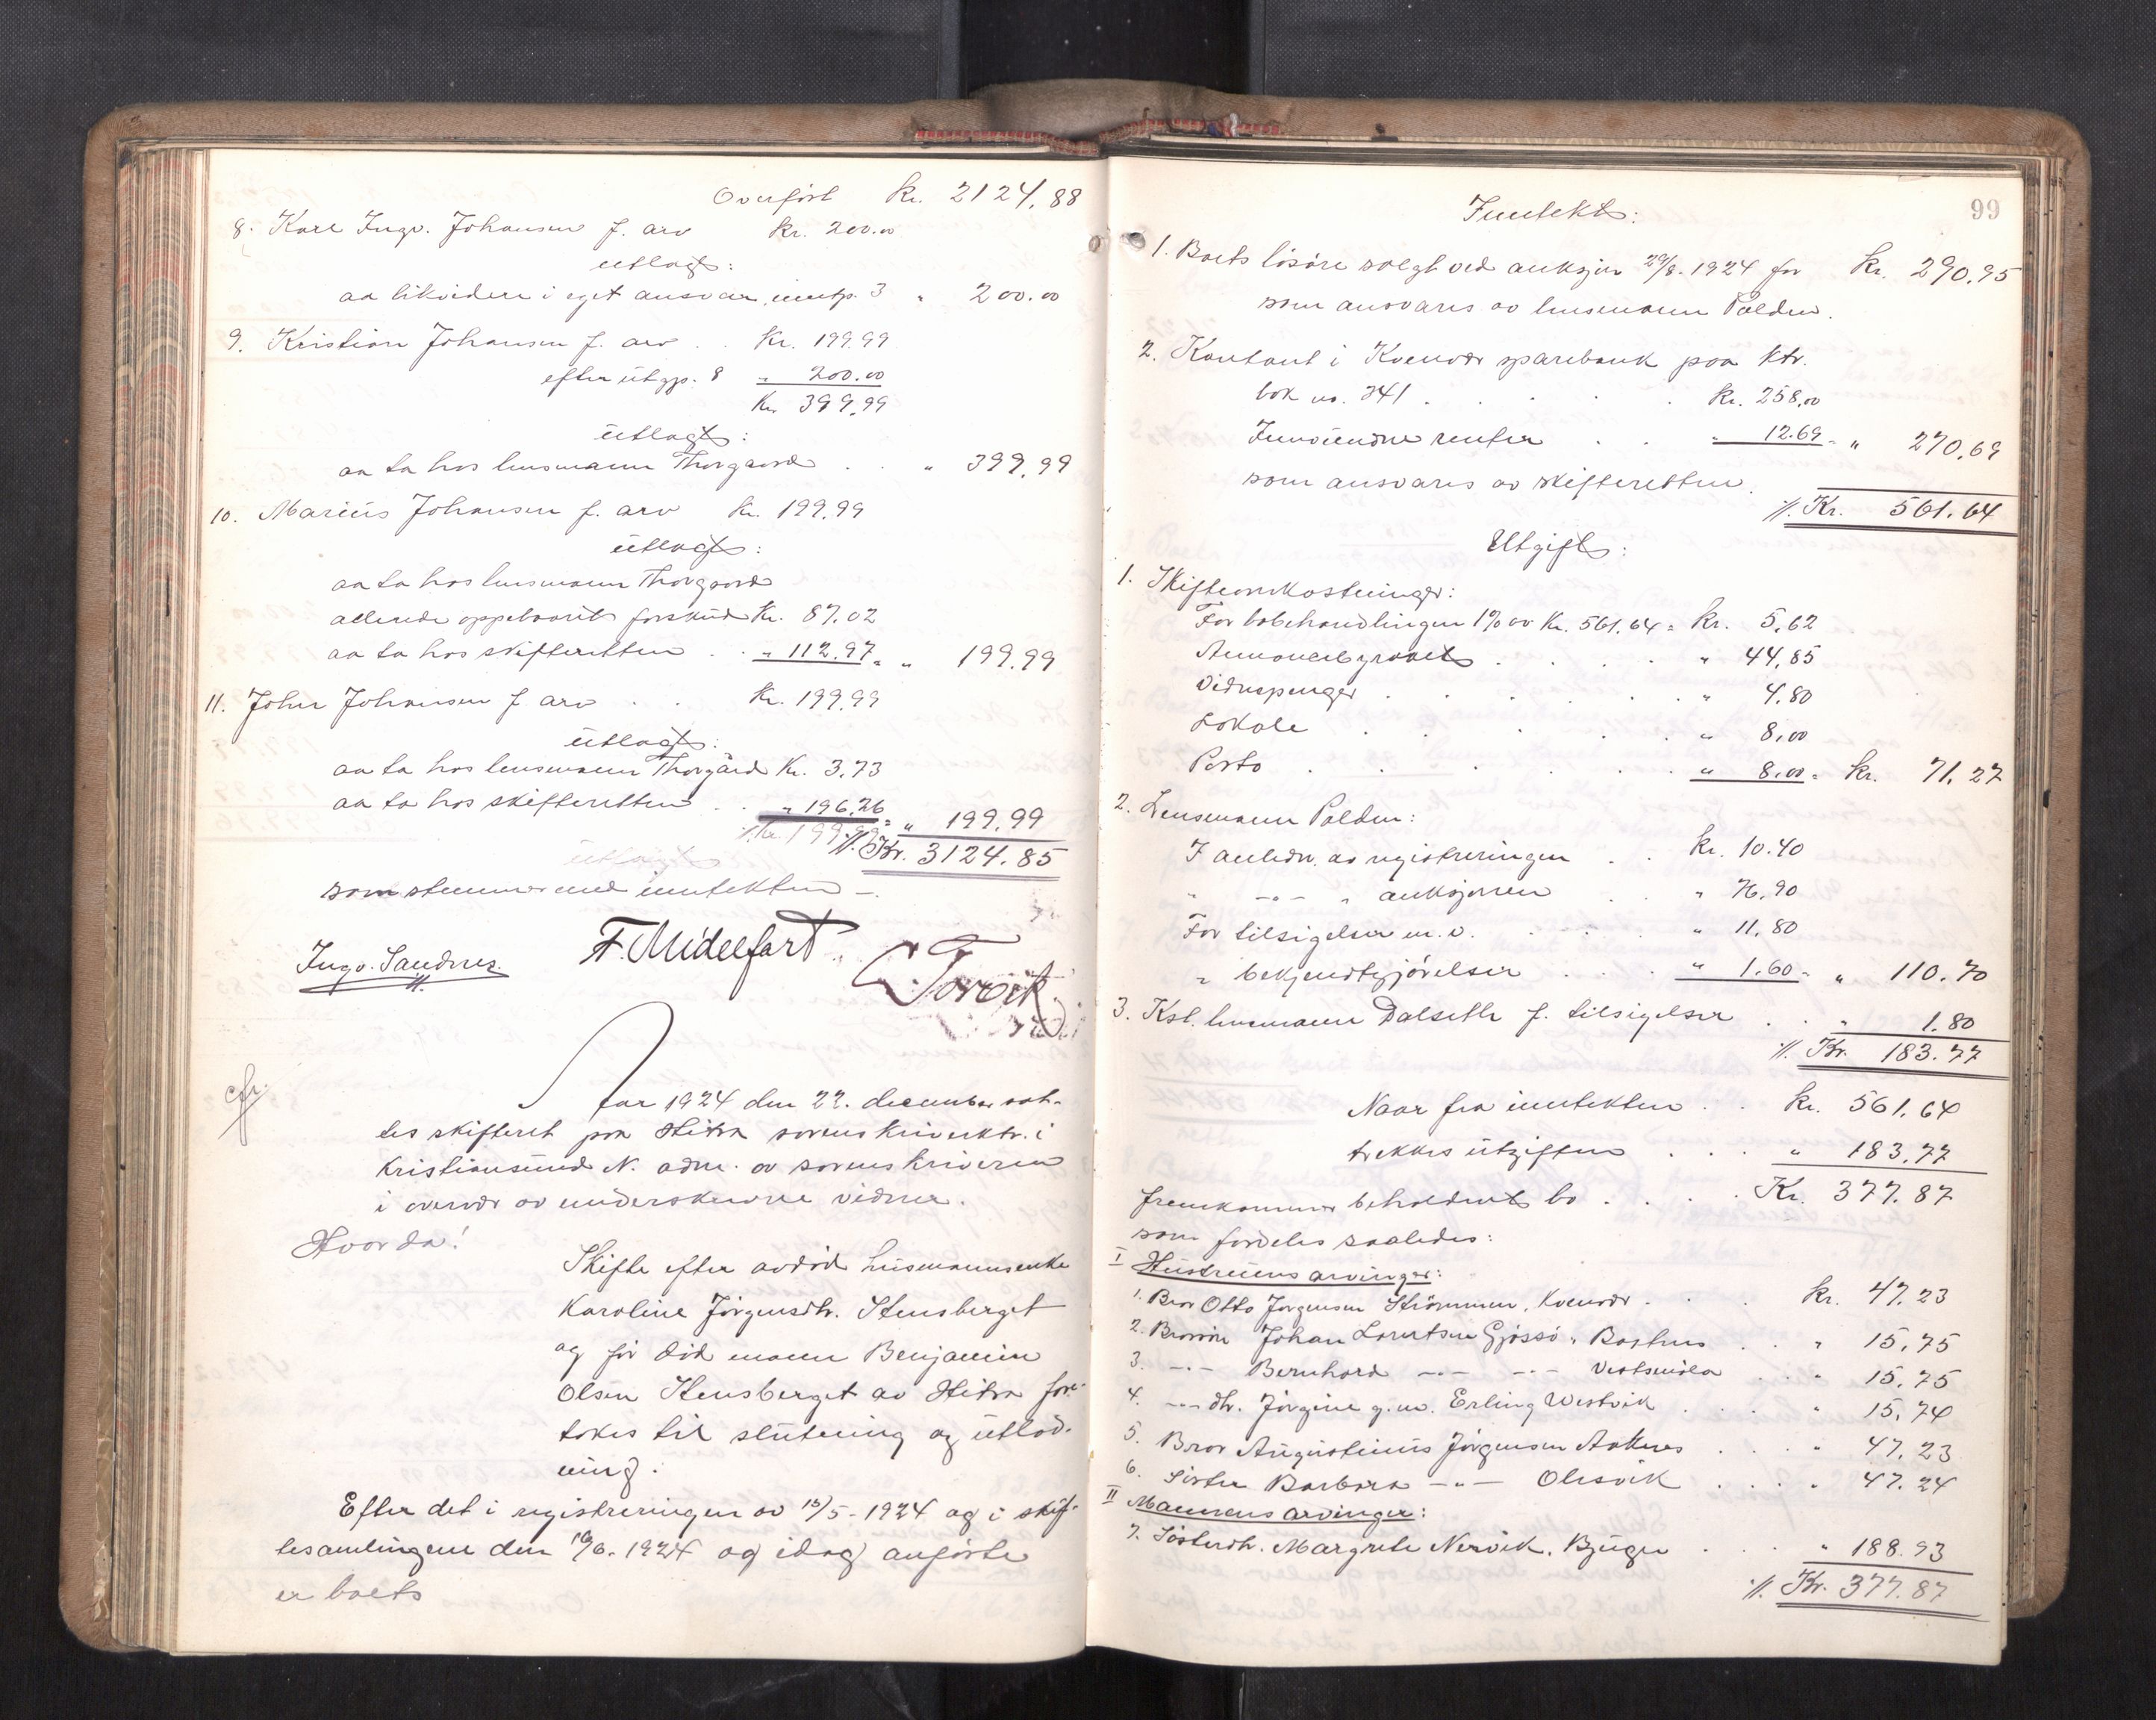 Overført Kr. 2124.88
8. Karl Ingv. Johansen f. arv Kr. 200.00
utlagt:
aa likvidere i eget ansvar, inntp. 3 " 200.00
9. Kristian Johansen f. arv . . Kr. 199.99
efter utgp. 8 " 200.00
Kr. 399.99
utlagt:
aa ta hos lensmann Thorgaard . . " 399.99
10. Marius Johansen f. arv Kr. 199.99
utlagt:
aa ta hos lensmann Thorgaard
allerede oppebaaret forskud Kr. 87.02
aa ta hos skifteretten . . " 112.97 = " 199.99
11. John Johansen f. arv . . Kr. 199.99
utlagt:
aa ta hos lensmann Thorgård Kr. 3.73
aa ta hos skifteretten . . " 196.26 = " 199.99
./. Kr. 3124.85
som stemmer med inntekten —.
Ingv. Sandnes. F. Midelfart. Torvik
Aar 1924 den 22. december sat-
tes skifteret paa Hitra sorenskriverktr. i
Kristiansund N. adm. av sorenskriveren
i overvær av underskrevne vidner.
cfr.
Hvor da!
Skifte efter avdød husmannsenke
Karoline Jørgensdtr. Stensberget
og før død mann Benjamin
Olsen Stensberget av Hitra fore-
tokes til slutning og utlod-
ning.
Efter det i registreringen av 13/5-1924 og i skif-
tesamlingene den 16/6-1924 og idag anførte
er boets
99
Inntekt:
1. Boets løsøre solgt ved auksjon 29/8-1924 for Kr. 290.95
som ansvares av lensmann Palden.
2. Kontant i Kvenvær sparebank paa ktr.
bok no. 341 . . . . . Kr. 258.00
Innvundne renter . . " 12.69 = " 270.69
som ansvares av skifteretten.
./. Kr. 561.64
Utgift:
1. Skifteomkostninger:
For bobehandlingen 1% av Kr. 561.64 = Kr. 5.62
Annoncebyraaet . . . . " 44.85
Vidnepenger . . . . . " 4.80
Lokale . . . . . " 8.00
Porto . . . . . " 8.00 = Kr. 71.27
2. Lensmann Palden:
I anledn. av registreringen . . Kr. 10.40
" —"— " auksjonen . " 76.90
For tilsigelser m.v. . . . " 11.80
" bekjendtgjørelser . . . " 1.60 = " 110.70
3. Kst. lensmann Dalseth f. tilsigelser . . " 1.80
./. Kr. 183.77
Naar fra inntekten . . Kr. 561.64
trekkes utgiften . . . " 183.77
fremkommer beholdent bo . . . . Kr. 377.87
som fordeles saaledes:
I Hustruens arvinger:
1. Bror Otto Jørgensen Strømmen, Kvenvær . . . Kr. 47.23
2. Brorsøn Johan Lorentsen Gjøssø, . . " 15.75
3. —"— Bernhard —"— —"— . . " 15.75
4. —"— dtr. Jørgine g.m. Erling Westvik . . " 15.74
5. Bror Augustinus Jørgensen Aaknes . . . " 47.23
6. Søster Barbara —"— Olesvik . . . . " 47.24
II Mannens arvinger:
7. Søsterdtr. Margrete Nervik, Bjugn . . . " 188.93
./. Kr. 377.87